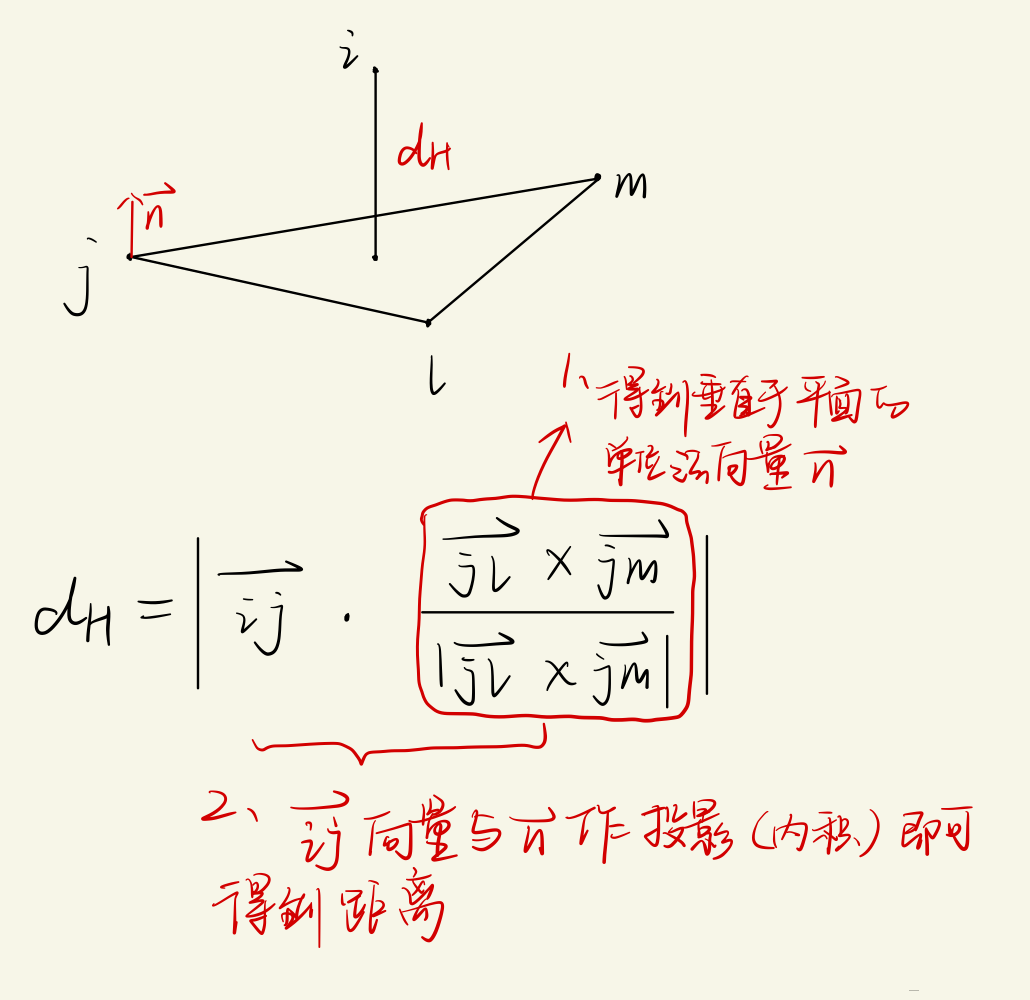 i
dH
m
n⃗
j
l
1、得到垂直于平面的
单位法向量 n⃗
dH = | ij⃗ · (jl⃗ × jm⃗) / |jl⃗ × jm⃗| |
2、ij⃗ 向量与 n⃗ 作投影(内积)即可
得到距离